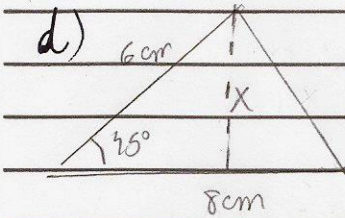 d)
6 cm
X
45°
8cm